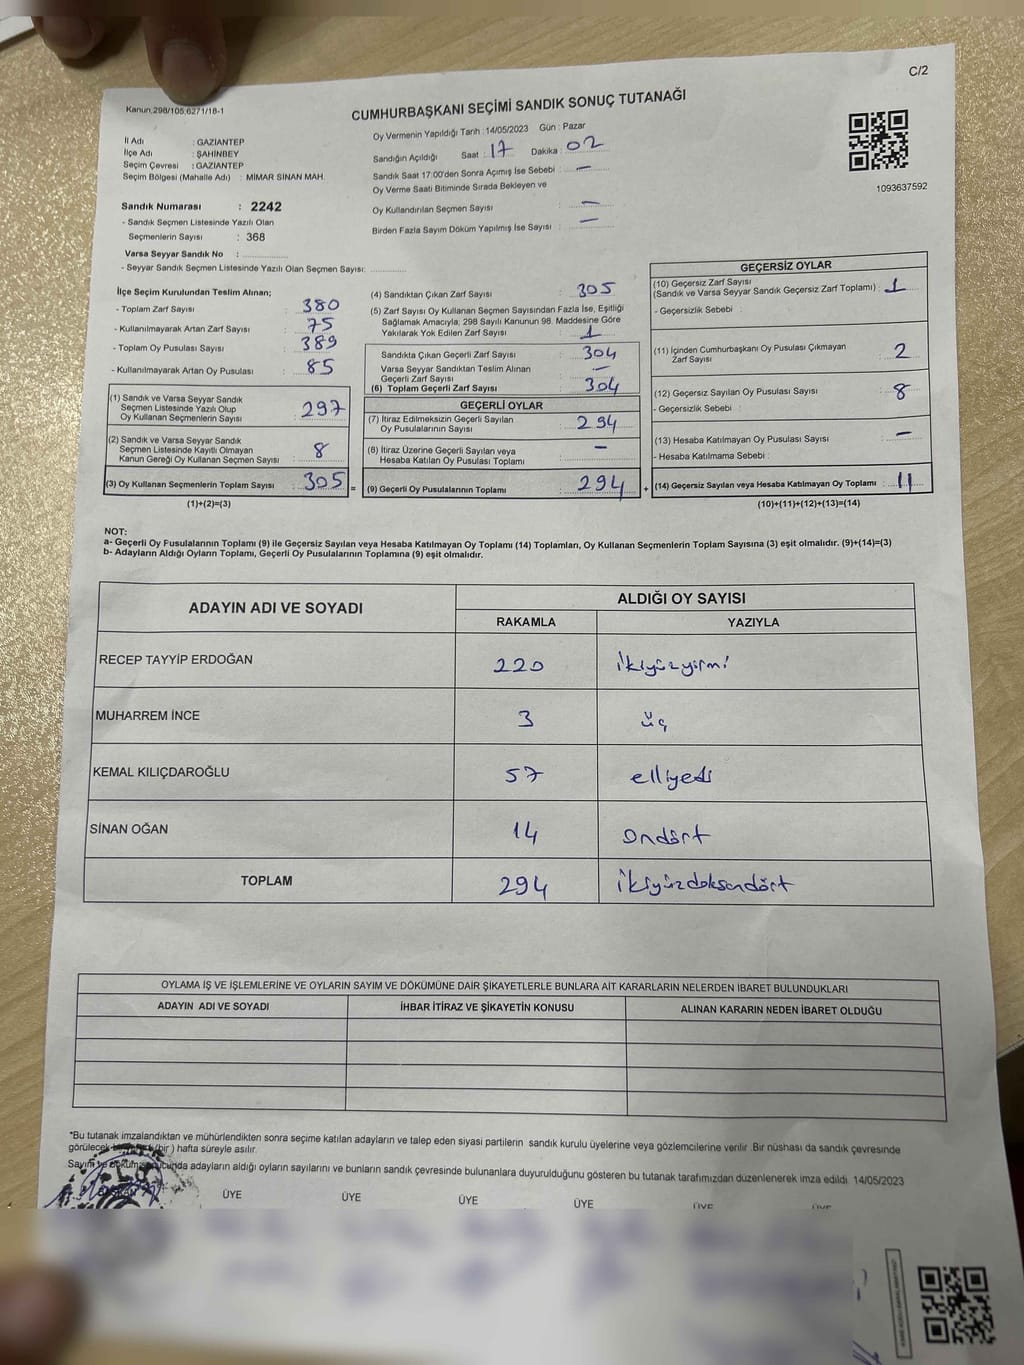 C/2
Kanun:298/105;6271/18-1
CUMHURBAŞKANI SEÇİMİ SANDIK SONUÇ TUTANAĞI
İl Adı : GAZİANTEP
İlçe Adı : ŞAHİNBEY
Seçim Çevresi : GAZİANTEP
Seçim Bölgesi (Mahalle Adı) : MİMAR SİNAN MAH.
Oy Vermenin Yapıldığı Tarih : 14/05/2023 Gün : Pazar
Sandığın Açıldığı Saat : 17 Dakika : 02
Sandık Saat 17:00'den Sonra Açımış İse Sebebi : —
Oy Verme Saati Bitiminde Sırada Bekleyen ve
Oy Kullandırılan Seçmen Sayısı : —
Birden Fazla Sayım Döküm Yapılmış İse Sayısı : —
1093637592
Sandık Numarası : 2242
- Sandık Seçmen Listesinde Yazılı Olan
Seçmenlerin Sayısı : 368
Varsa Seyyar Sandık No :
- Seyyar Sandık Seçmen Listesinde Yazılı Olan Seçmen Sayısı:
İlçe Seçim Kurulundan Teslim Alınan;
- Toplam Zarf Sayısı : 380
- Kullanılmayarak Artan Zarf Sayısı : 75
- Toplam Oy Pusulası Sayısı : 389
- Kullanılmayarak Artan Oy Pusulası : 85
(1) Sandık ve Varsa Seyyar Sandık
Seçmen Listesinde Yazılı Olup
Oy Kullanan Seçmenlerin Sayısı : 297
(2) Sandık ve Varsa Seyyar Sandık
Seçmen Listesinde Kayıtlı Olmayan
Kanun Gereği Oy Kullanan Seçmen Sayısı : 8
(3) Oy Kullanan Seçmenlerin Toplam Sayısı : 305 =
(1)+(2)=(3)
(4) Sandıktan Çıkan Zarf Sayısı : 305
(5) Zarf Sayısı Oy Kullanan Seçmen Sayısından Fazla İse, Eşitliği
Sağlamak Amacıyla, 298 Sayılı Kanunun 98. Maddesine Göre
Yakılarak Yok Edilen Zarf Sayısı : 1
Sandıkta Çıkan Geçerli Zarf Sayısı : 304
Varsa Seyyar Sandıktan Teslim Alınan
Geçerli Zarf Sayısı : —
(6) Toplam Geçerli Zarf Sayısı : 304
GEÇERLİ OYLAR
(7) İtiraz Edilmeksizin Geçerli Sayılan
Oy Pusulalarının Sayısı : 294
(8) İtiraz Üzerine Geçerli Sayılan veya
Hesaba Katılan Oy Pusulası Toplamı : —
(9) Geçerli Oy Pusulalarının Toplamı : 294 +
GEÇERSİZ OYLAR
(10) Geçersiz Zarf Sayısı
(Sandık ve Varsa Seyyar Sandık Geçersiz Zarf Toplamı) : 1
- Geçersizlik Sebebi :
(11) İçinden Cumhurbaşkanı Oy Pusulası Çıkmayan
Zarf Sayısı : 2
(12) Geçersiz Sayılan Oy Pusulası Sayısı : 8
- Geçersizlik Sebebi :
(13) Hesaba Katılmayan Oy Pusulası Sayısı : —
- Hesaba Katılmama Sebebi :
(14) Geçersiz Sayılan veya Hesaba Katılmayan Oy Toplamı : 11
(10)+(11)+(12)+(13)=(14)
NOT:
a- Geçerli Oy Pusulalarının Toplamı (9) ile Geçersiz Sayılan veya Hesaba Katılmayan Oy Toplamı (14) Toplamları, Oy Kullanan Seçmenlerin Toplam Sayısına (3) eşit olmalıdır. (9)+(14)=(3)
b- Adayların Aldığı Oyların Toplamı, Geçerli Oy Pusulalarının Toplamına (9) eşit olmalıdır.
ADAYIN ADI VE SOYADI ALDIĞI OY SAYISI
RAKAMLA YAZIYLA
RECEP TAYYİP ERDOĞAN 220 ikiyüzyirmi
MUHARREM İNCE 3 üç
KEMAL KILIÇDAROĞLU 57 elliyedi
SİNAN OĞAN 14 ondört
TOPLAM 294 ikiyüzdoksandört
OYLAMA İŞ VE İŞLEMLERİNE VE OYLARIN SAYIM VE DÖKÜMÜNE DAİR ŞİKAYETLERLE BUNLARA AİT KARARLARIN NELERDEN İBARET BULUNDUKLARI
ADAYIN ADI VE SOYADI İHBAR İTİRAZ VE ŞİKAYETİN KONUSU ALINAN KARARIN NEDEN İBARET OLDUĞU
*Bu tutanak imzalandıktan ve mühürlendikten sonra seçime katılan adayların ve talep eden siyasi partilerin sandık kurulu üyelerine veya gözlemcilerine verilir. Bir nüshası da sandık çevresinde
görülecek (bir) hafta süreyle asılır.
Sayım ve döküm sonucunda adayların aldığı oyların sayılarını ve bunların sandık çevresinde bulunanlara duyurulduğunu gösteren bu tutanak tarafımızdan düzenlenerek imza edildi. 14/05/2023
BAŞKAN ÜYE ÜYE ÜYE ÜYE ÜYE ÜYE